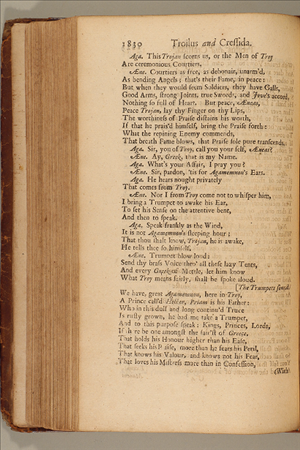 1830 Troilus and Cressida.
Aga. This Trojan scorns us, or the Men of Troy
Are ceremonious Courtiers.
Æne. Courtiers as free, as debonair, unarm'd,
As bending Angels; that's their Fame, in peace:
But when they would seem Souldiers, they have Galls,
Good Arms, strong Joints, true Swords, and Jove's accord,
Nothing so full of Heart. But peace, Æneas,
Peace Trojan, lay thy Finger on thy Lips,
The worthiness of Praise distains his worth,
If that he prais'd himself, bring the Praise forth:
What the repining Enemy commends,
That breath Fame blows, that Praise sole pure transcends.
Aga. Sir, you of Troy, call you your self, Æneas?
Æne. Ay, Greek, that is my Name.
Aga. What's your Affair, I pray you?
Æne. Sir, pardon, 'tis for Agamemnon's Ears.
Aga. He hears nought privately
That comes from Troy.
Æne. Nor I from Troy come not to whisper him,
I bring a Trumpet to awake his Ear,
To set his Sense on the attentive bent,
And then to speak.
Aga. Speak frankly as the Wind,
It is not Agamemnon's sleeping hour;
That thou shalt know, Trojan, he is awake,
He tells thee so himself.
Æne. Trumpet blow loud;
Send thy brass Voice thro' all these lazy Tents,
And every Greek of Mettle, let him know
What Troy means fairly, shall be spoke aloud.
[The Trumpets sound.
We have, great Agamemnon, here in Troy,
A Prince call'd Hector, Priam is his Father:
Who in this dull and long continu'd Truce
Is rusty grown, he bad me take a Trumpet,
And to this purpose speak: Kings, Princes, Lords,
If there be one amongst the fair'st of Greece,
That holds his Honour higher than his Ease,
That seeks his Praise, more than he fears his Peril,
That knows his Valour, and knows not his Fear,
That loves his Mistress more than in Confession,
(With